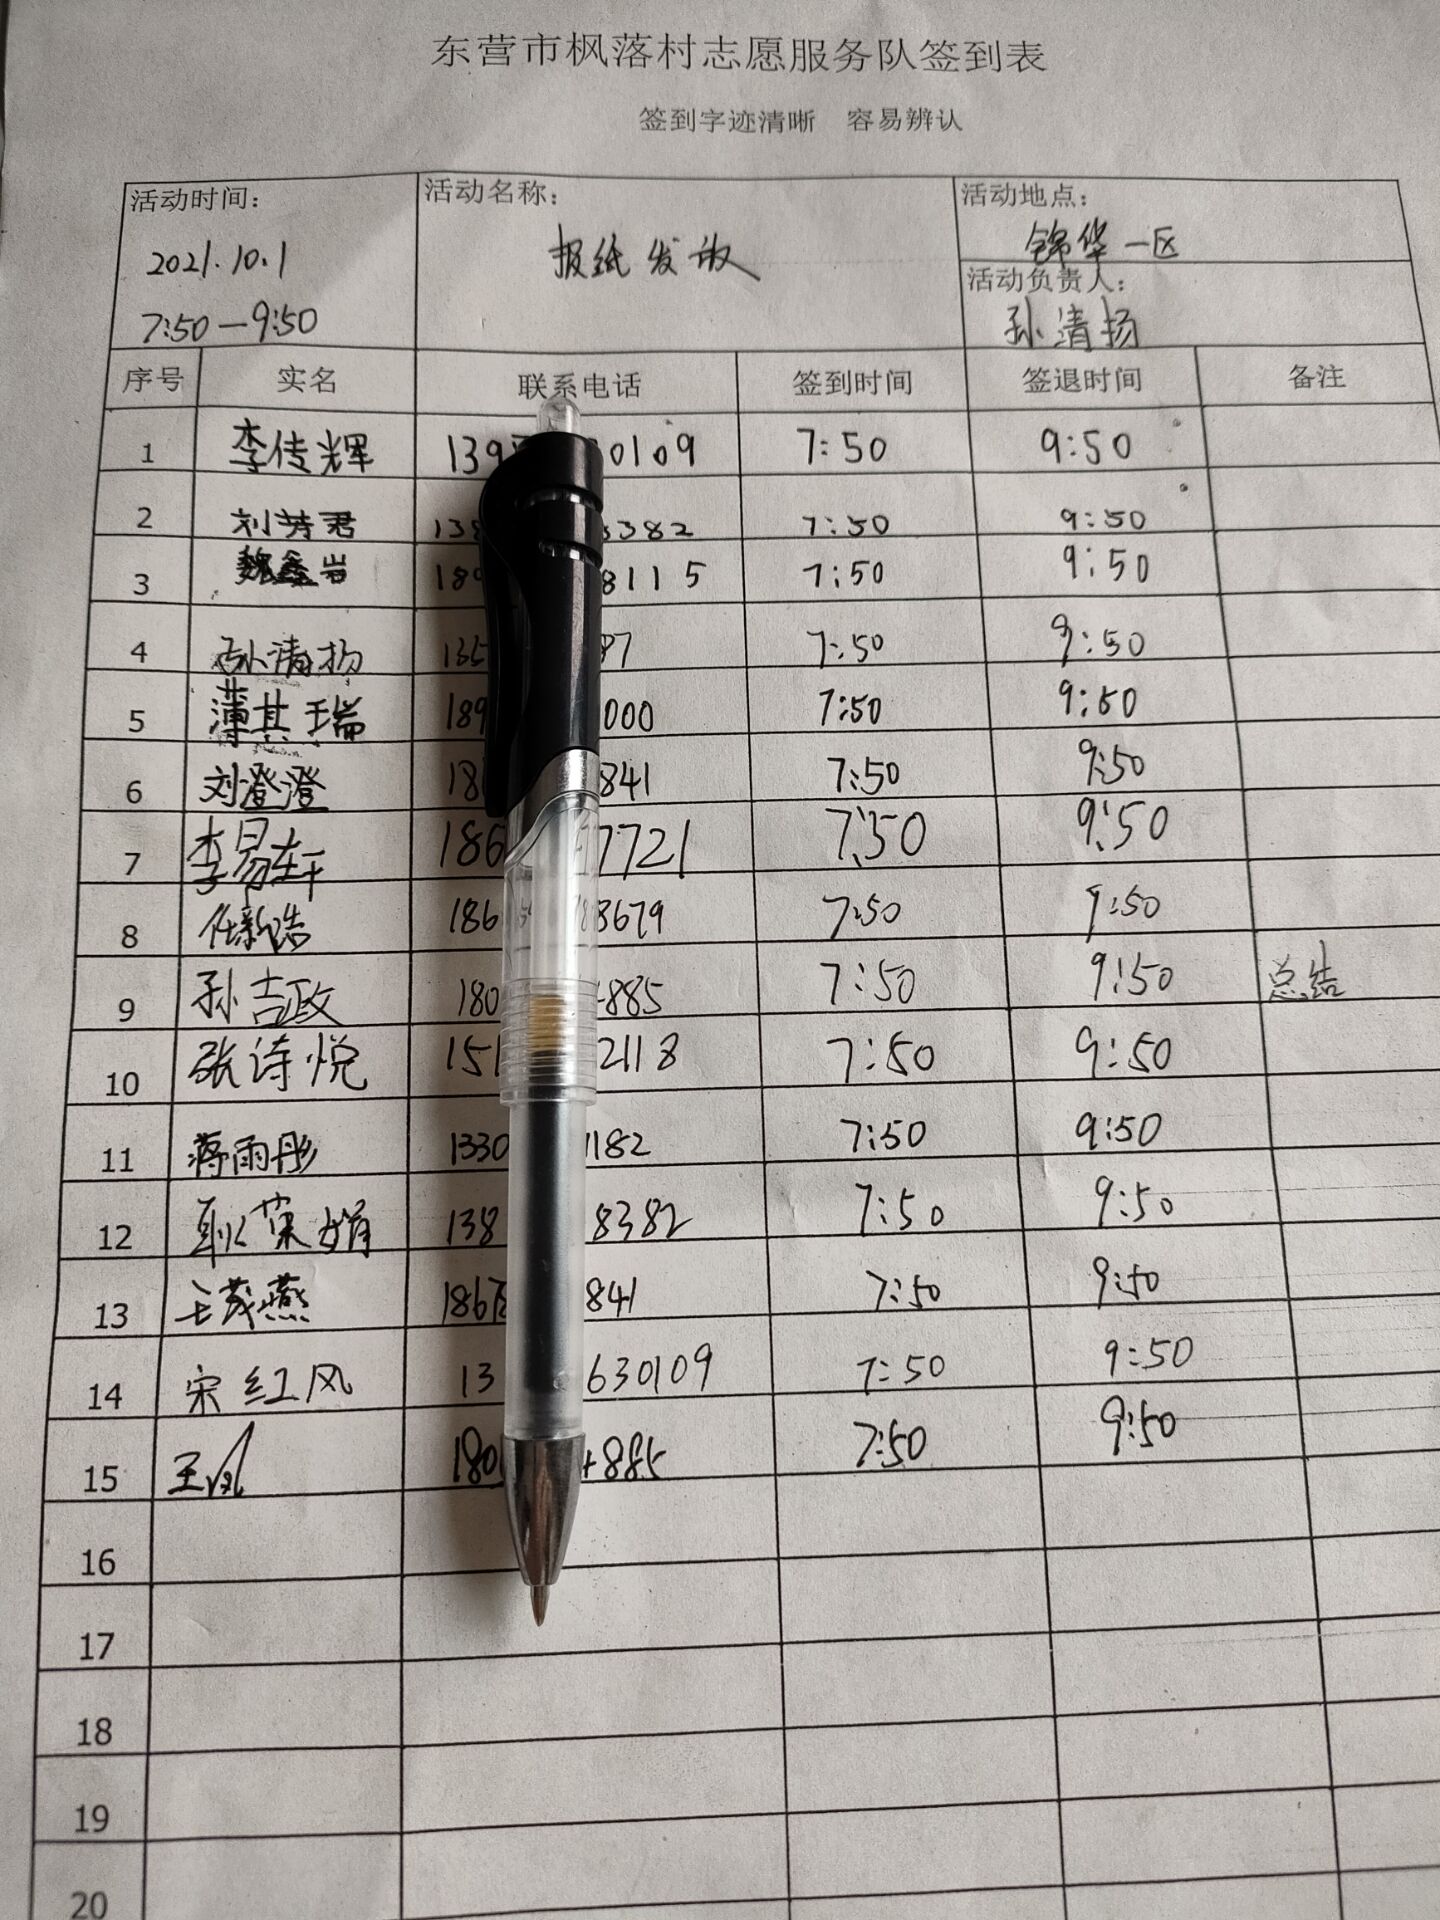 东营市枫落村志愿服务队签到表
签到字迹清晰 容易辨认
活动时间: 活动名称: 活动地点:
2021.10.1 报纸发放 锦华一区
7:50—9:50 活动负责人:
孙清扬
序号 实名 联系电话 签到时间 签退时间 备注
1 李传辉 139 0109 7:50 9:50
2 刘芳君 138 8382 7:50 9:50
3 魏鑫岩 189 8115 7:50 9:50
4 孙清扬 135 87 7:50 9:50
5 薄其瑞 189 000 7:50 9:50
6 刘澄澄 18 841 7:50 9:50
7 李易轩 186 7721 7:50 9:50
8 任新浩 186 88679 7:50 9:50
9 孙吉政 180 4885 7:50 9:50 总结
10 张诗悦 151 2118 7:50 9:50
11 蒋雨彤 1330 1182 7:50 9:50
12 耿荣娟 138 8382 7:50 9:50
13 王茂燕 1867 841 7:50 9:50
14 宋红风 13 630109 7:50 9:50
15 王凤 180 4885 7:50 9:50
16
17
18
19
20